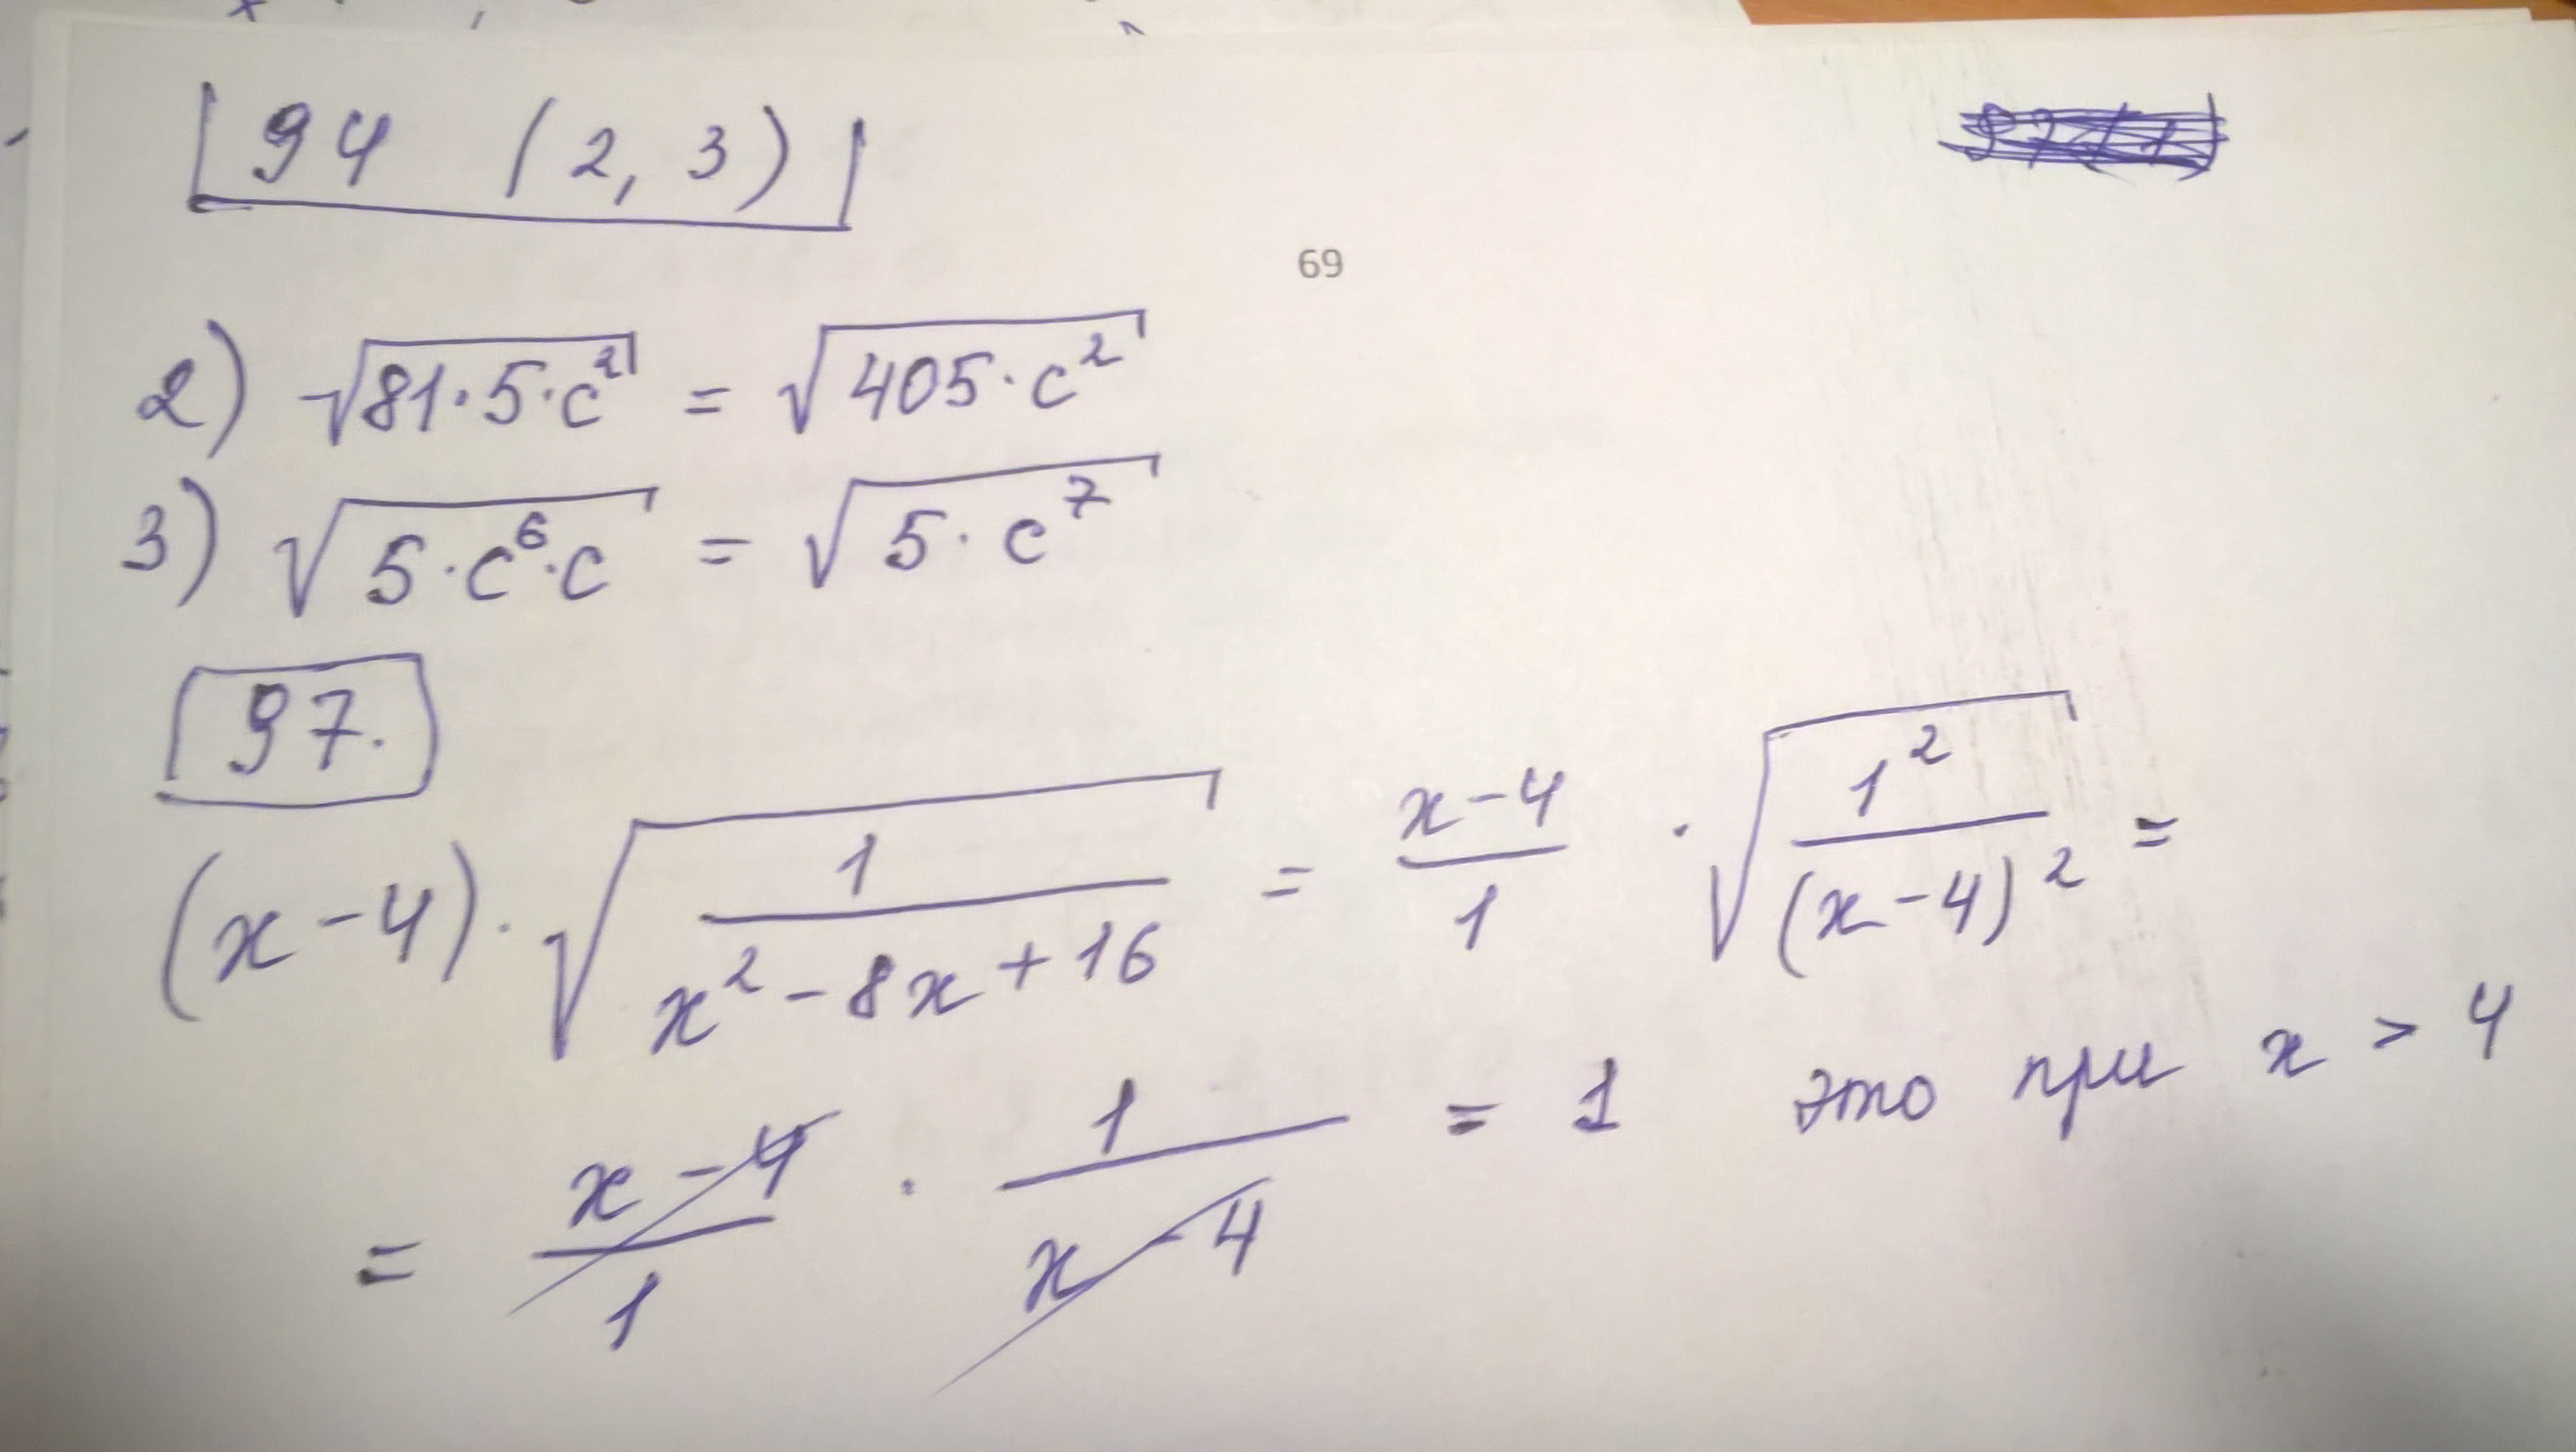 94 (2, 3)
69
2) √(81·5·c²) = √(405·c²)
3) √(5·c⁶·c) = √(5·c⁷)
97.
(x-4)·√(1/(x²-8x+16)) = (x-4)/1 · √(1²/(x-4)²) =
= (x-4)/1 · 1/(x-4) = 1 это при x > 4